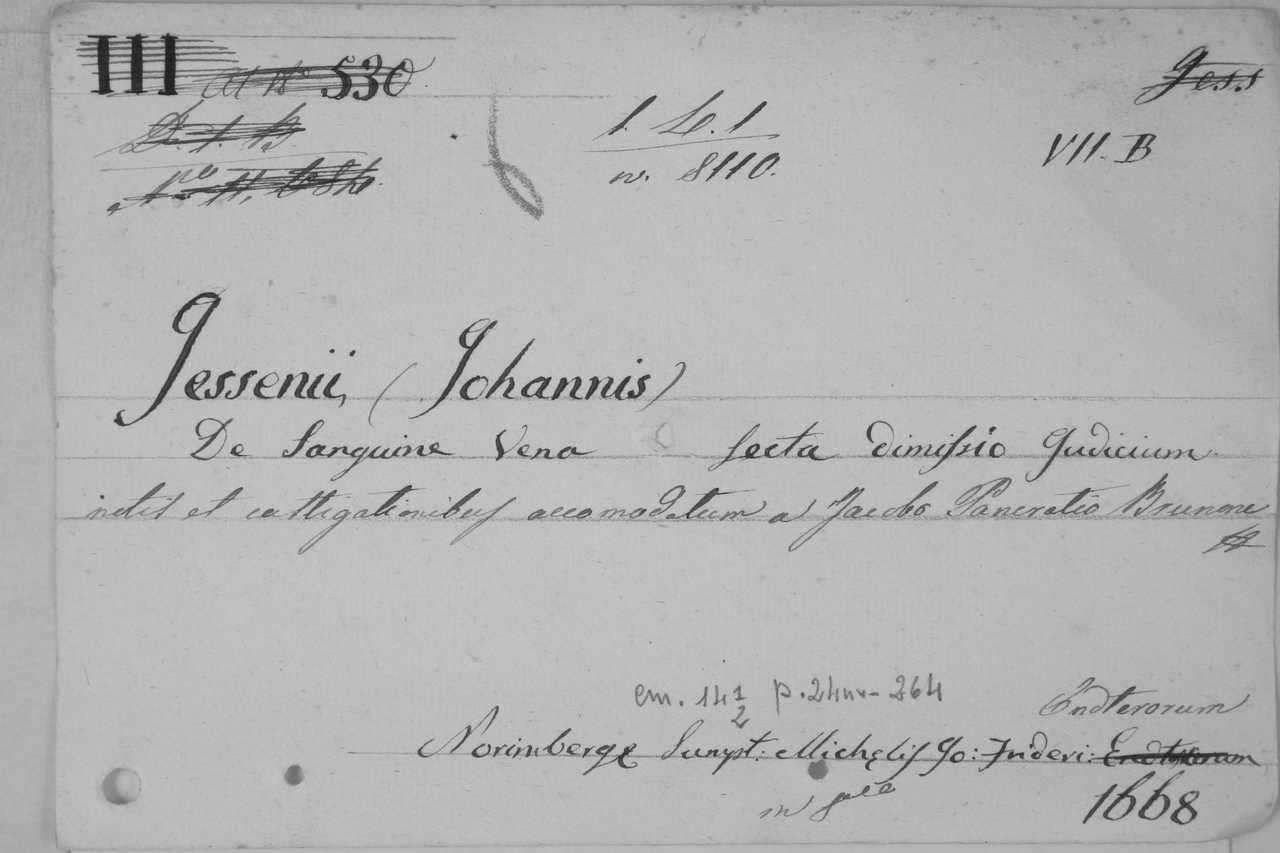 III 530 Jess
1. L. 1 VII. B
n. 8110.
Jessenii, (Johannis)
De Sanguine Vena Secta dimissio Judicium
notis et castigationibus accomodatum a Jacobo Pancratio Brunone
em. 14 1/2 p. 24nn - 264 Endterorum
Norimbergę Sumpt: Michęlis Jo: Frideri: Endterorum
in 8
1668